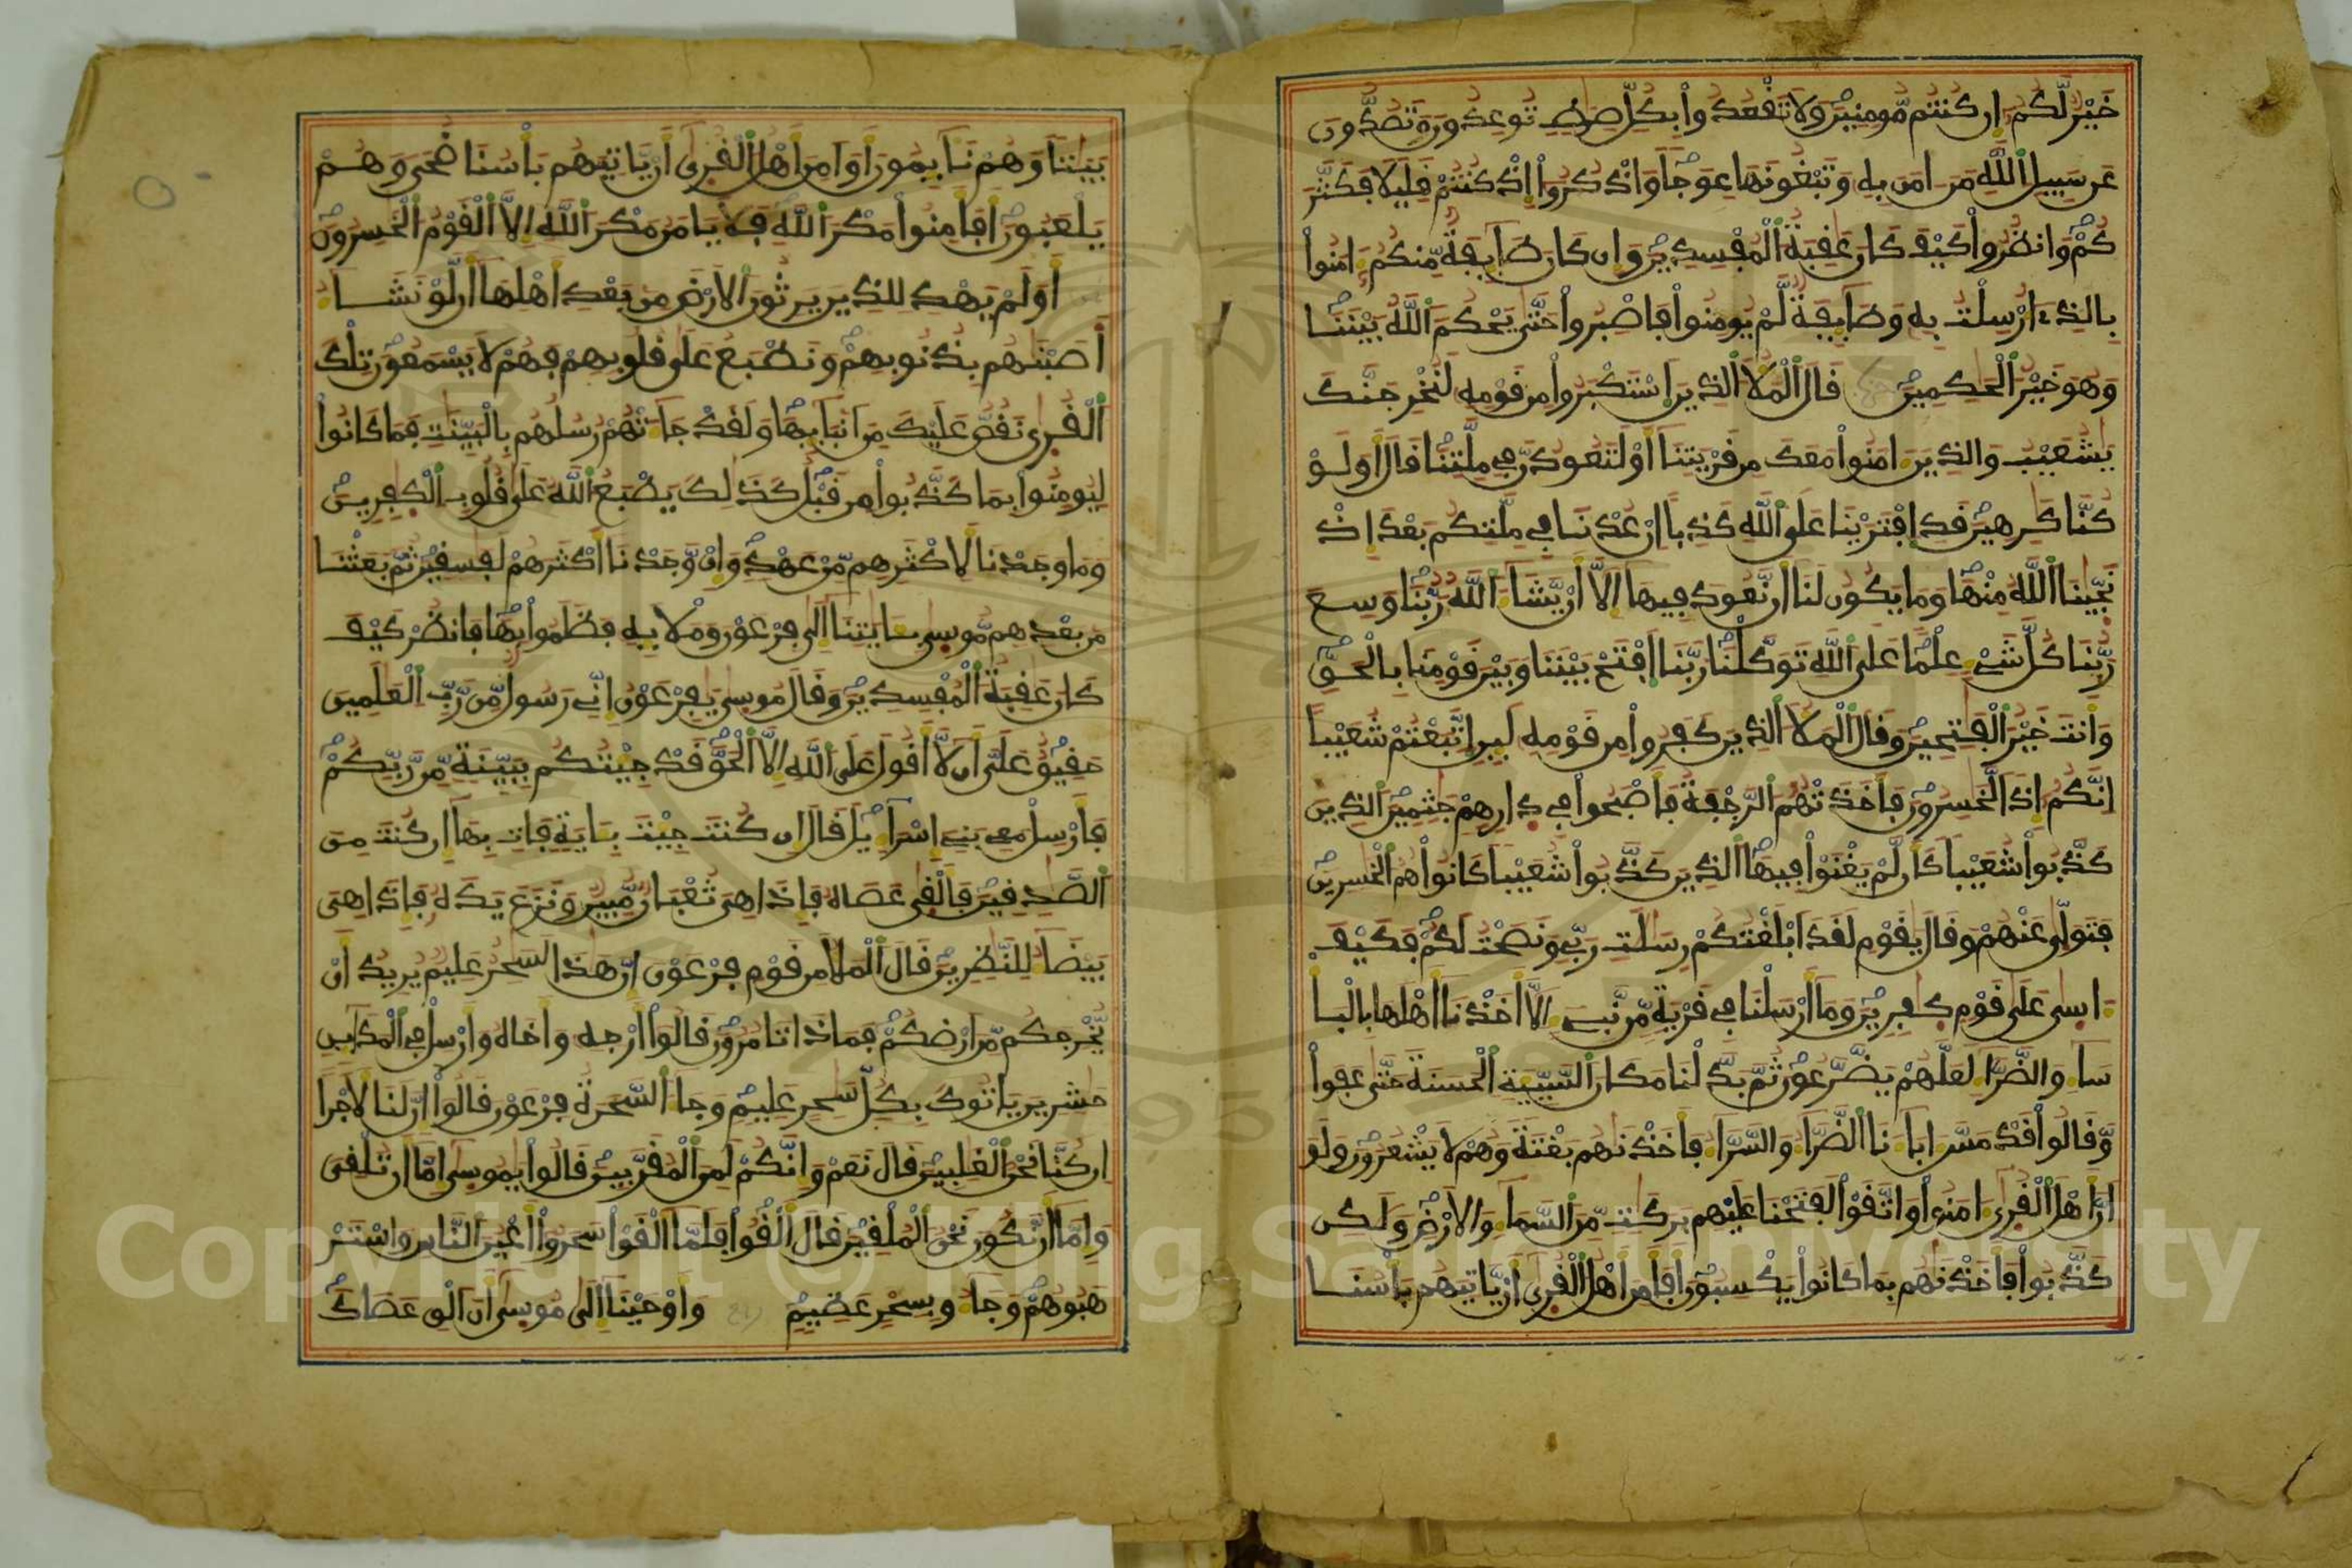 خَيْرٌ لَّكُمُ إِن كُنتُم مُّومِنِينَ وَلَا تَقْعُدُواْ بِكُلِّ صِرَٰطٍ تُوعِدُونَ وَتَصُدُّونَ
عَن سَبِيلِ اِ۬للَّهِ مَنَ اٰمَنَ بِهِۦ وَتَبْغُونَهَا عِوَجاً وَاذْكُرُوٓاْ إِذْ كُنتُمْ قَلِيلًا فَكَثَّرَ
كُمْ وَانظُرُواْ كَيْفَ كَانَ عَٰقِبَةُ اُ۬لْمُفْسِدِينَ وَإِن كَانَ طَآئِفَةٌ مِّنكُمُۥٓ ءَامَنُواْ
بِالذِےٓ أُرْسِلْتُ بِهِۦ وَطَآئِفَةٌ لَّمْ يُومِنُواْ فَاصْبِرُواْ حَتَّىٰ يَحْكُمَ اَ۬للَّهُ بَيْنَنَا
وَهُوَ خَيْرُ اُ۬لْحَٰكِمِينَ قَالَ اَ۬لْمَلَأُ اُ۬لذِينَ اَ۪سْتَكْبَرُواْ مِن قَوْمِهِۦ لَنُخْرِجَنَّكَ
يَٰشُعَيْبُ وَالذِينَ ءَامَنُواْ مَعَكَ مِن قَرْيَتِنَآ أَوْ لَتَعُودُنَّ فِے مِلَّتِنَا قَالَ أَوَلَوْ
كُنَّا كَٰرِهِينَ قَدِ اِ۪فْتَرَيْنَا عَلَى اَ۬للَّهِ كَذِباً اِنْ عُدْنَا فِے مِلَّتِكُم بَعْدَ إِذْ
نَجَّيٰنَا اَ۬للَّهُ مِنْهَا وَمَا يَكُونُ لَنَآ أَن نَّعُودَ فِيهَآ إِلَّآ أَنْ يَّشَآءَ اَ۬للَّهُ رَبُّنَا وَسِعَ
رَبُّنَا كُلَّ شَےْءٍ عِلْماً عَلَى اَ۬للَّهِ تَوَكَّلْنَا رَبَّنَا اَ۪فْتَحْ بَيْنَنَا وَبَيْنَ قَوْمِنَا بِالْحَقِّ
وَأَنتَ خَيْرُ اُ۬لْفَٰتِحِينَ وَقَالَ اَ۬لْمَلَأُ اُ۬لذِينَ كَفَرُواْ مِن قَوْمِهِۦ لَئِنِ اِ۪تَّبَعْتُمْ شُعَيْباً
اِنَّكُمُۥٓ إِذاً لَّخَٰسِرُونَ فَأَخَذَتْهُمُ اُ۬لرَّجْفَةُ فَأَصْبَحُواْ فِے دِارِهِمْ جَٰثِمِينَ اَ۬لذِينَ
كَذَّبُواْ شُعَيْباً كَأَن لَّمْ يَغْنَوْاْ فِيهَا اَ۬لذِينَ كَذَّبُواْ شُعَيْباً كَانُواْ هُمُ اُ۬لْخَٰسِرِينَ
فَتَوَلَّىٰ عَنْهُمْ وَقَالَ يَٰقَوْمِ لَقَدَ اَبْلَغْتُكُمْ رِسَٰلَٰتِ رَبِّے وَنَصَحْتُ لَكُمْ فَكَيْفَ
ءَاسىٰ عَلَىٰ قَوْمٍ كٰ۪فِرِينَ وَمَآ أَرْسَلْنَا فِے قَرْيَةٍ مِّن نَّبِےٓءٍ اِلَّآ أَخَذْنَآ أَهْلَهَا بِالْبَأْ
سَآءِ وَالضَّرَّآءِ لَعَلَّهُمْ يَضَّرَّعُونَ ثُمَّ بَدَّلْنَا مَكَانَ اَ۬لسَّيِّئَةِ اِ۬لْحَسَنَةَ حَتَّىٰ عَفَواْ
وَّقَالُواْ قَدْ مَسَّ ءَابَآءَنَا اَ۬لضَّرَّآءُ وَالسَّرَّآءُ فَأَخَذْنَٰهُم بَغْتَةً وَهُمْ لَا يَشْعُرُونَ وَلَوَ
اَنَّ أَهْلَ اَ۬لْقُرَىٰٓ ءَامَنُواْ وَاتَّقَوْاْ لَفَتَحْنَا عَلَيْهِم بَرَكَٰتٍ مِّنَ اَ۬لسَّمَآءِ وَالَارْضِ وَلَٰكِن
كَذَّبُواْ فَأَخَذْنَٰهُم بِمَا كَانُواْ يَكْسِبُونَ أَفَأَمِنَ أَهْلُ اُ۬لْقُرَىٰٓ أَنْ يَّاتِيَهُم بَأْسُنَا
بَيَٰتاً وَهُمْ نَآئِمُونَ أَوَامِنَ أَهْلُ اُ۬لْقُرَىٰٓ أَنْ يَّاتِيَهُم بَأْسُنَا ضُحىً وَهُمْ
يَلْعَبُونَ أَفَأَمِنُواْ مَكْرَ اَ۬للَّهِ فَلَا يَامَنُ مَكْرَ اَ۬للَّهِ إِلَّا اَ۬لْقَوْمُ اُ۬لْخَٰسِرُونَ
أَوَلَمْ يَهْدِ لِلذِينَ يَرِثُونَ اَ۬لَارْضَ مِنۢ بَعْدِ أَهْلِهَآ أَن لَّوْ نَشَآءُ
أَصَبْنَٰهُم بِذُنُوبِهِمْ وَنَطْبَعُ عَلَىٰ قُلُوبِهِمْ فَهُمْ لَا يَسْمَعُونَ تِلْكَ
اَ۬لْقُرَىٰ نَقُصُّ عَلَيْكَ مِنَ اَنۢبَآئِهَا وَلَقَدْ جَآءَتْهُمْ رُسُلُهُم بِالْبَيِّنَٰتِ فَمَا كَانُواْ
لِيُومِنُواْ بِمَا كَذَّبُواْ مِن قَبْلُ كَذَٰلِكَ يَطْبَعُ اُ۬للَّهُ عَلَىٰ قُلُوبِ اِ۬لْكٰ۪فِرِينَ
وَمَا وَجَدْنَا لِأَكْثَرِهِم مِّنْ عَهْدٍ وَإِنْ وَّجَدْنَآ أَكْثَرَهُمْ لَفَٰسِقِينَ ثُمَّ بَعَثْنَا
مِنۢ بَعْدِهِم مُّوسىٰ بِـَٔايَٰتِنَآ إِلَىٰ فِرْعَوْنَ وَمَلَإِيْهِۦ فَظَلَمُواْ بِهَا فَانظُرْ كَيْفَ
كَانَ عَٰقِبَةُ اُ۬لْمُفْسِدِينَ وَقَالَ مُوسىٰ يَٰفِرْعَوْنُ إِنِّے رَسُولٌ مِّن رَّبِّ اِ۬لْعَٰلَمِينَ
حَقِيقٌ عَلَيَّ أَن لَّآ أَقُولَ عَلَى اَ۬للَّهِ إِلَّا اَ۬لْحَقَّ قَدْ جِئْتُكُم بِبَيِّنَةٍ مِّن رَّبِّكُمْ
فَأَرْسِلْ مَعِے بَنِےٓ إِسْرَآءِيلَ قَالَ إِن كُنتَ جِئْتَ بِـَٔايَةٍ فَاتِ بِهَآ إِن كُنتَ مِنَ
اَ۬لصَّٰدِقِينَ فَأَلْقىٰ عَصَاهُ فَإِذَا هِيَ ثُعْبَانٌ مُّبِينٌ وَنَزَعَ يَدَهُۥ فَإِذَا هِيَ
بَيْضَآءُ لِلنَّٰظِرِينَ قَالَ اَ۬لْمَلَأُ مِن قَوْمِ فِرْعَوْنَ إِنَّ هَٰذَا لَسَٰحِرٌ عَلِيمٌ يُرِيدُ أَنْ
يُّخْرِجَكُم مِّنَ اَرْضِكُمْ فَمَاذَا تَامُرُونَ قَالُوٓاْ أَرْجِهِۦ وَأَخَاهُ وَأَرْسِلْ فِے اِ۬لْمَدَآئِنِ
حَٰشِرِينَ يَاتُوكَ بِكُلِّ سَٰحِرٍ عَلِيمٍ وَجَآءَ اَ۬لسَّحَرَةُ فِرْعَوْنَ قَالُوٓاْ إِنَّ لَنَا لَأَجْراً
اِن كُنَّا نَحْنُ اُ۬لْغَٰلِبِينَ قَالَ نَعَمْ وَإِنَّكُمْ لَمِنَ اَ۬لْمُقَرَّبِينَ قَالُواْ يَٰمُوسىٰٓ إِمَّآ أَن تُلْقِيَ
وَإِمَّآ أَن نَّكُونَ نَحْنُ اُ۬لْمُلْقِينَ قَالَ أَلْقُواْ فَلَمَّآ أَلْقَوْاْ سَحَرُوٓاْ أَعْيُنَ اَ۬لنَّاسِ وَاسْتَرْ
هَبُوهُمْ وَجَآءُو بِسِحْرٍ عَظِيمٍ وَأَوْحَيْنَآ إِلَىٰ مُوسىٰٓ أَنَ اَلْقِ عَصَاكَ
Copyright © King Saud University